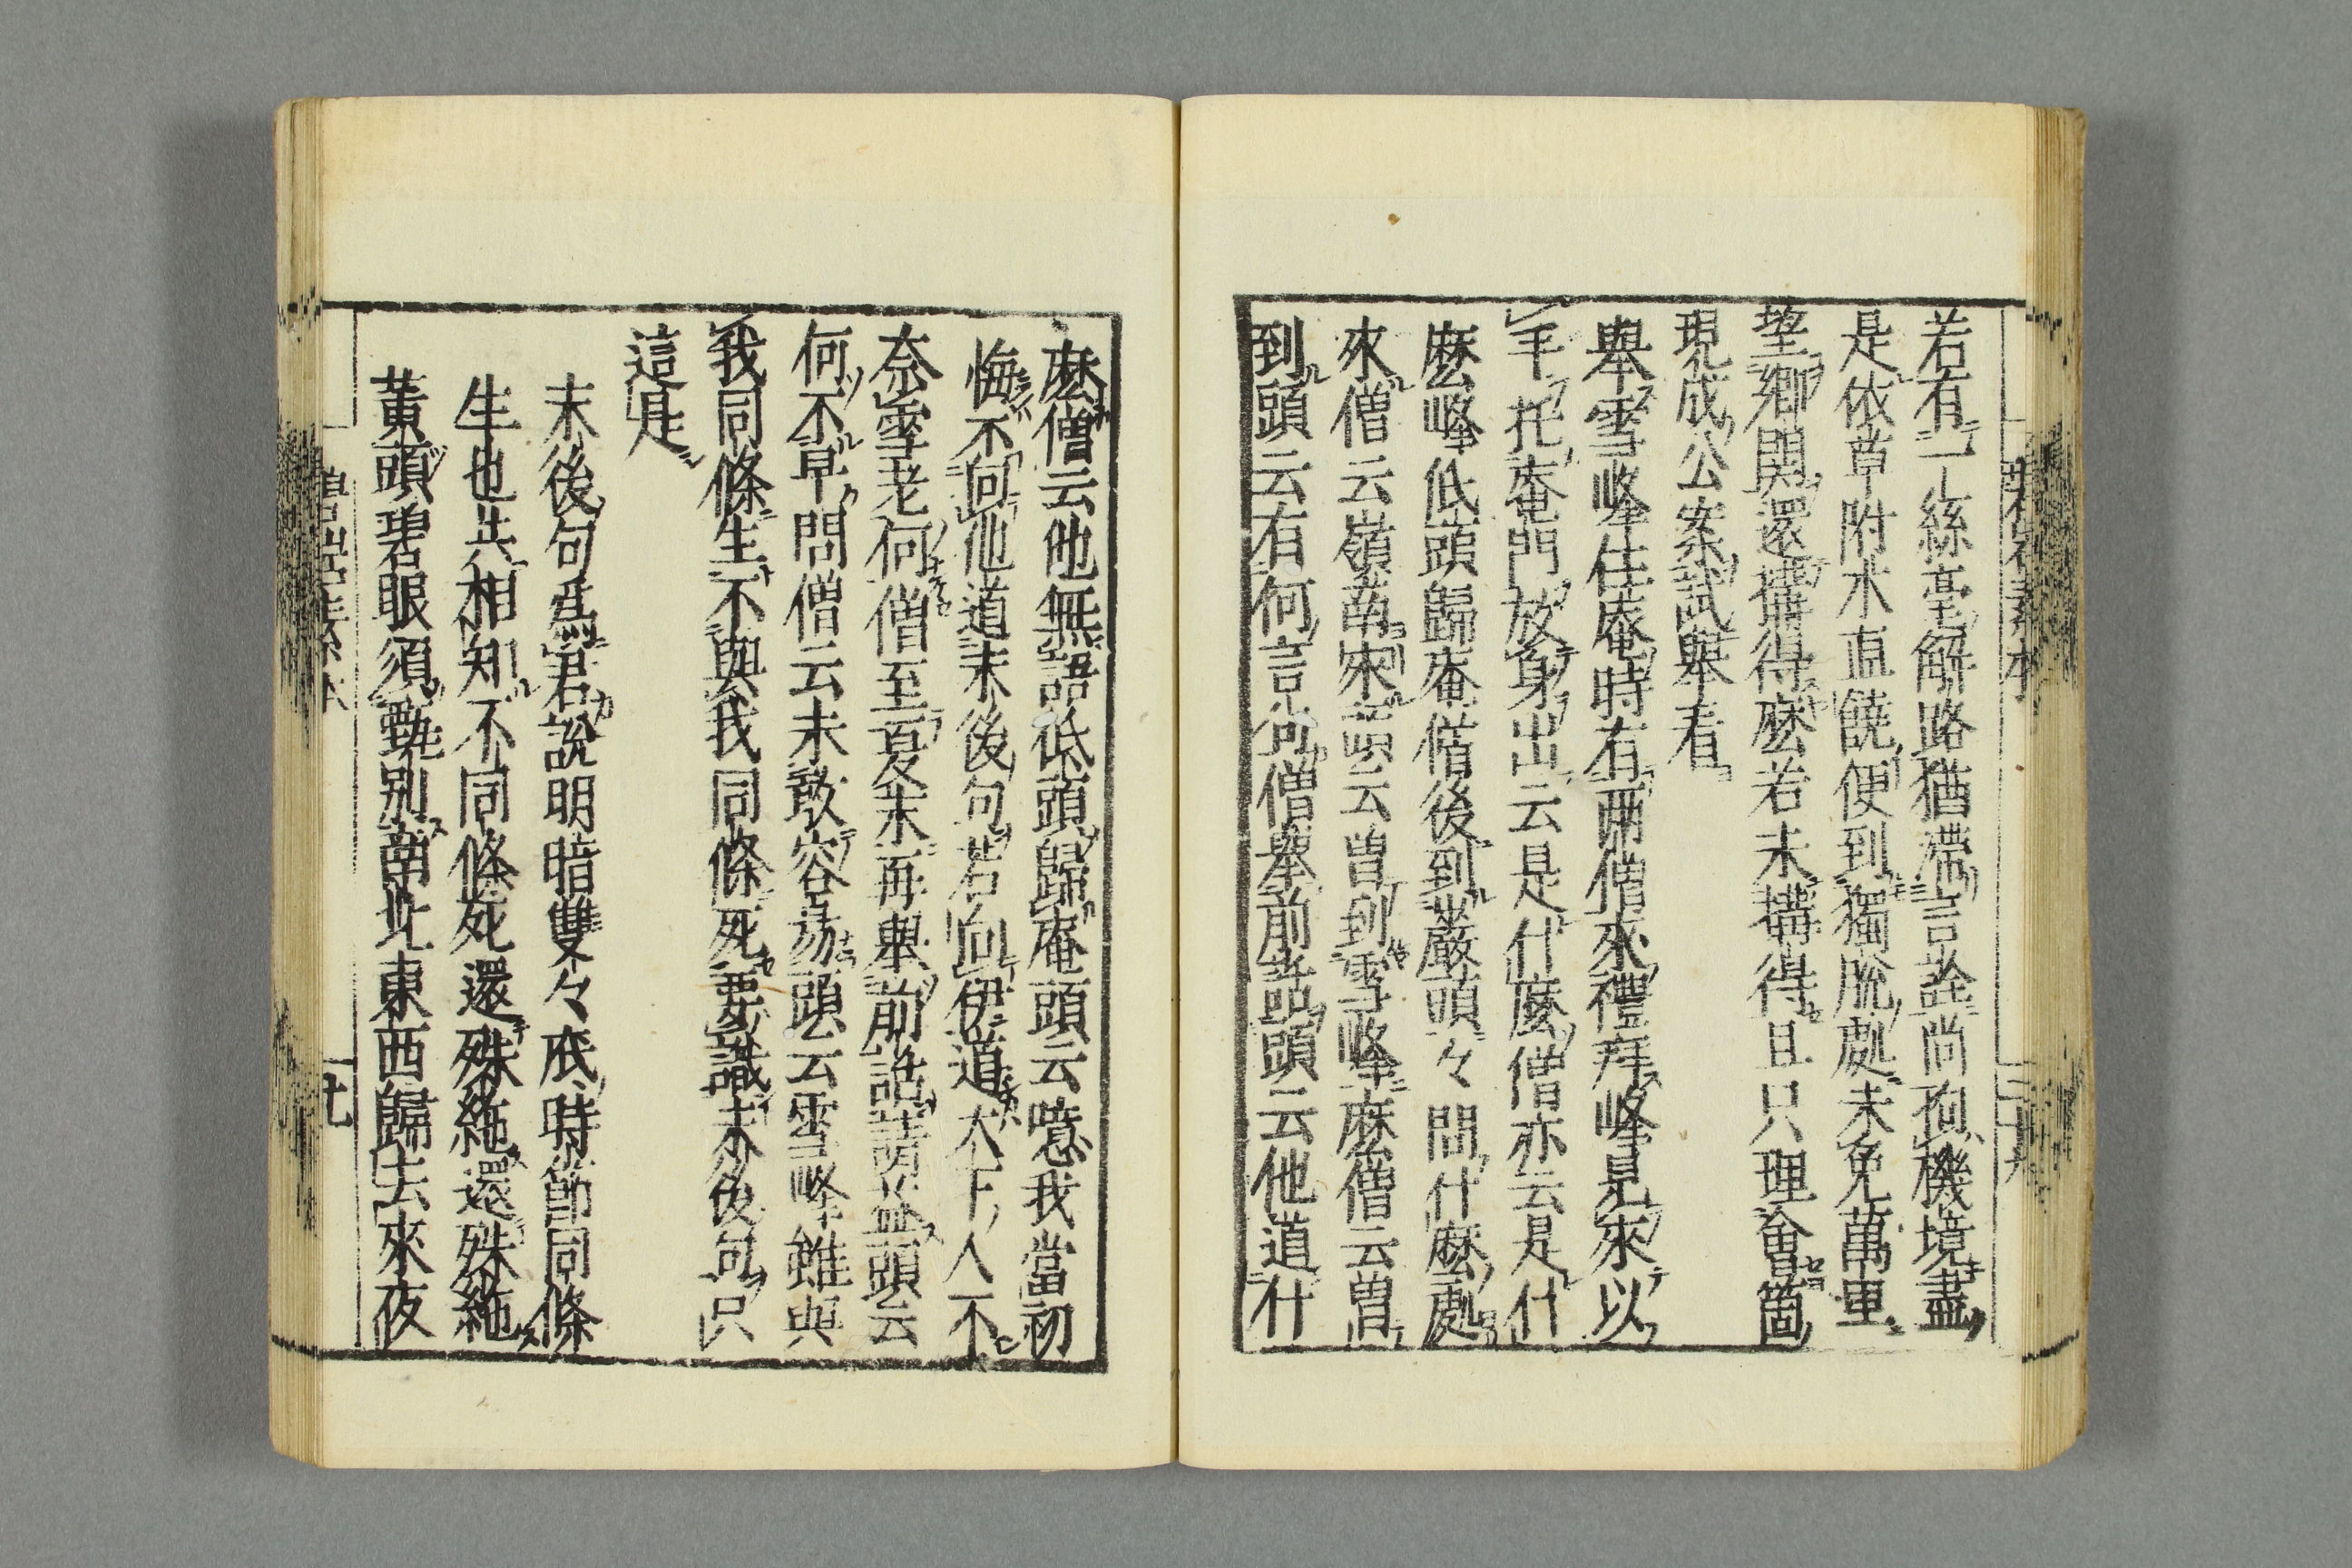 若有一絲毫解路猶滯言詮尚拘機境盡
是依草附木直饒便到獨脫處未免萬里
望鄉関還搆得麽若未搆得且只理會箇
現成公案試舉看
舉雪峰住庵時有兩僧來禮拜峰見來以
手托庵門放身出云是什麽僧亦云是什
麽峰低頭歸庵僧後到巖頭々問什麽處
來僧云嶺南來頭云曾到雪峰麽僧云曾
到頭云有何言句僧舉前話頭云他道什
麽僧云他無語低頭歸庵頭云噫我當初
悔不向他道末後句若向伊道天下人不
奈雪老何僧至夏末再舉前話請益頭云
何不早問僧云未敢容易頭云雪峰雖與
我同條生不與我同條死要識末後句只
這是
末後句爲君說明暗雙々底時節同條
生也共相知不同條死還殊絕還殊絕
黃頭碧眼須甄別南北東西歸去來夜